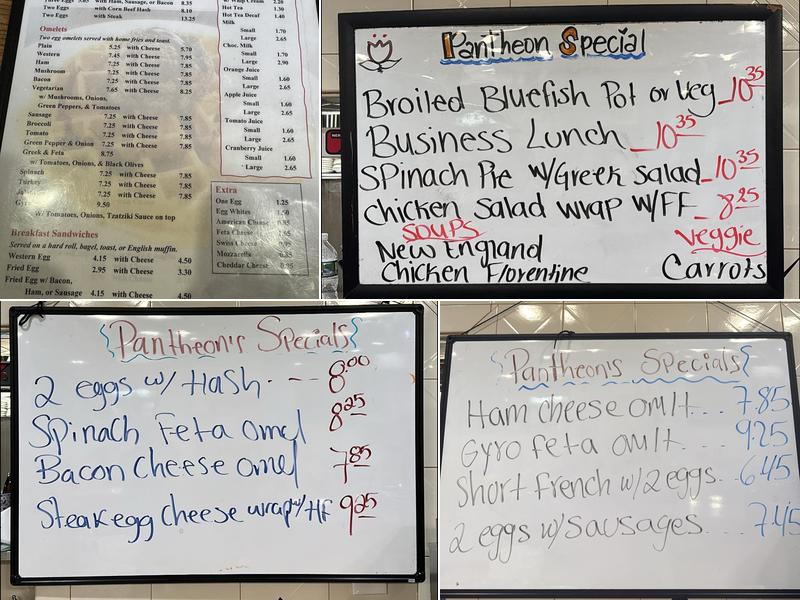 Two Eggs with Corn Beef Hash 8.10
Two Eggs with Steak 13.25
Omelets
Two egg omelets served with home fries and toast.
Plain 5.25 with Cheese 5.70
Western 7.45 with Cheese 7.95
Ham 7.25 with Cheese 7.85
Mushroom 7.25 with Cheese 7.85
Bacon 7.25 with Cheese 7.85
Vegetarian 7.65 with Cheese 8.25
w/ Mushrooms, Onions,
Green Peppers, & Tomatoes
Sausage 7.25 with Cheese 7.85
Broccoli 7.25 with Cheese 7.85
Tomato 7.25 with Cheese 7.85
Green Pepper & Onion 7.25 with Cheese 7.85
Greek & Feta 8.75
w/ Tomatoes, Onions, & Black Olives
Spinach 7.25 with Cheese 7.85
Turkey 7.25 with Cheese 7.85
7.25 with Cheese 7.85
9.50
w/ Tomatoes, Onions, Tzatziki Sauce on top
Breakfast Sandwiches
Served on a hard roll, bagel, toast, or English muffin.
Western Egg 4.15 with Cheese 4.50
Fried Egg 2.95 with Cheese 3.30
Fried Egg w/ Bacon,
Ham, or Sausage 4.15 with Cheese 4.50
Hot Tea 1.30
Hot Tea Decaf 1.40
Milk
Small 1.70
Large 2.65
Choc. Milk
Small 1.70
Large 2.90
Orange Juice
Small 1.60
Large 2.65
Apple Juice
Small 1.60
Large 2.65
Tomato Juice
Small 1.60
Large 2.65
Cranberry Juice
Small 1.60
Large 2.65
Extra
One Egg 1.25
Egg Whites 1.50
American Cheese
Feta Cheese
Swiss Cheese
Mozzarella
Cheddar Cheese
Pantheon Special
Broiled Bluefish Pot or Veg 10 35
Business Lunch 10 35
Spinach Pie w/Greek Salad 10 35
Chicken Salad wrap w/FF 8 25
SOUPS Veggie
New England
Chicken Florentine Carrots
Pantheon's Specials
2 eggs w/ Hash 8.00
Spinach Feta omel 8 25
Bacon Cheese omel 7 85
Steak egg Cheese wrap w/ HF 9 25
Pantheon's Specials
Ham cheese omlt... 7.85
Gyro feta omlt... 9.25
Short french w/2 eggs.. 6.45
2 eggs w/sausages... 7.45